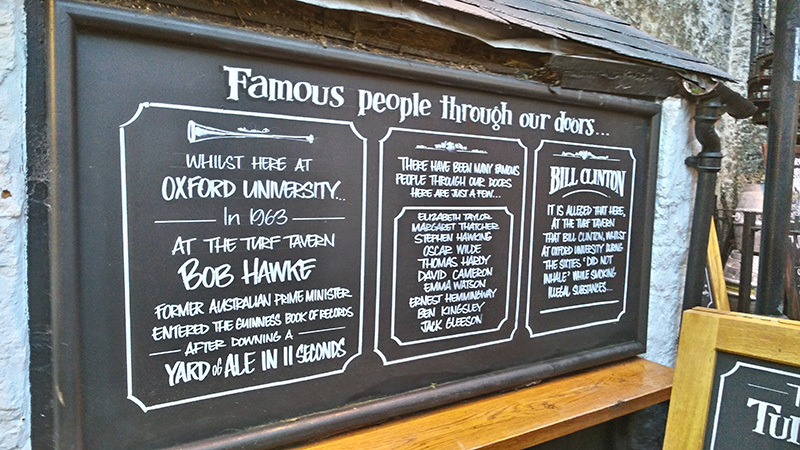 Famous people through our doors...
WHILST HERE AT
OXFORD UNIVERSITY...
In 1963
AT THE TURF TAVERN
BOB HAWKE
FORMER AUSTRALIAN PRIME MINISTER
ENTERED THE GUINNESS BOOK OF RECORDS
AFTER DOWNING A
YARD of ALE IN 11 SECONDS
THERE HAVE BEEN MANY FAMOUS
PEOPLE THROUGH OUR DOORS
HERE ARE JUST A FEW...
ELIZABETH TAYLOR
MARGARET THATCHER
STEPHEN HAWKING
OSCAR WILDE
THOMAS HARDY
DAVID CAMERON
EMMA WATSON
ERNEST HEMMINGWAY
BEN KINGSLEY
JACK GLEESON
BILL CLINTON
IT IS ALLEGED THAT HERE,
AT THE TURF TAVERN
THAT BILL CLINTON, WHILST
AT OXFORD UNIVERSITY DURING
THE SIXTIES "DID NOT
INHALE" WHILE SMOKING
ILLEGAL SUBSTANCES...